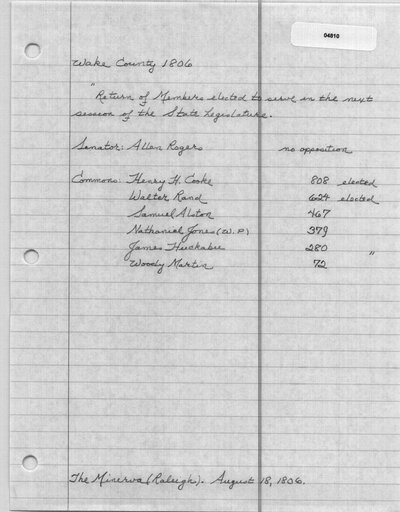 04810
Wake County 1806
"Return of Members elected to serve in the next
session of the State Legislature.
Senator: Allen Rogers no opposition
Commons: Henry H. Cooke 808 elected
Walter Rand 624 elected
Samuel Alston 467
Nathaniel Jones (W. P.) 379
James Huckabee 280
Woody Martin 72 "
The Minerva (Raleigh). August 18, 1806.